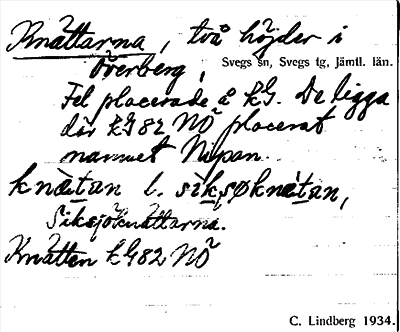 Knättarna, två höjder i
Överberg,
Svegs sn, Svegs tg, Jämtl. län.
Fel placerade å kG. De ligga
där kG 82 NÖ placerat
namnet Nipan.
knètan l. siksøknètan,
Siksjöknättarna.
Knätten kG82 NÖ
C. Lindberg 1934.